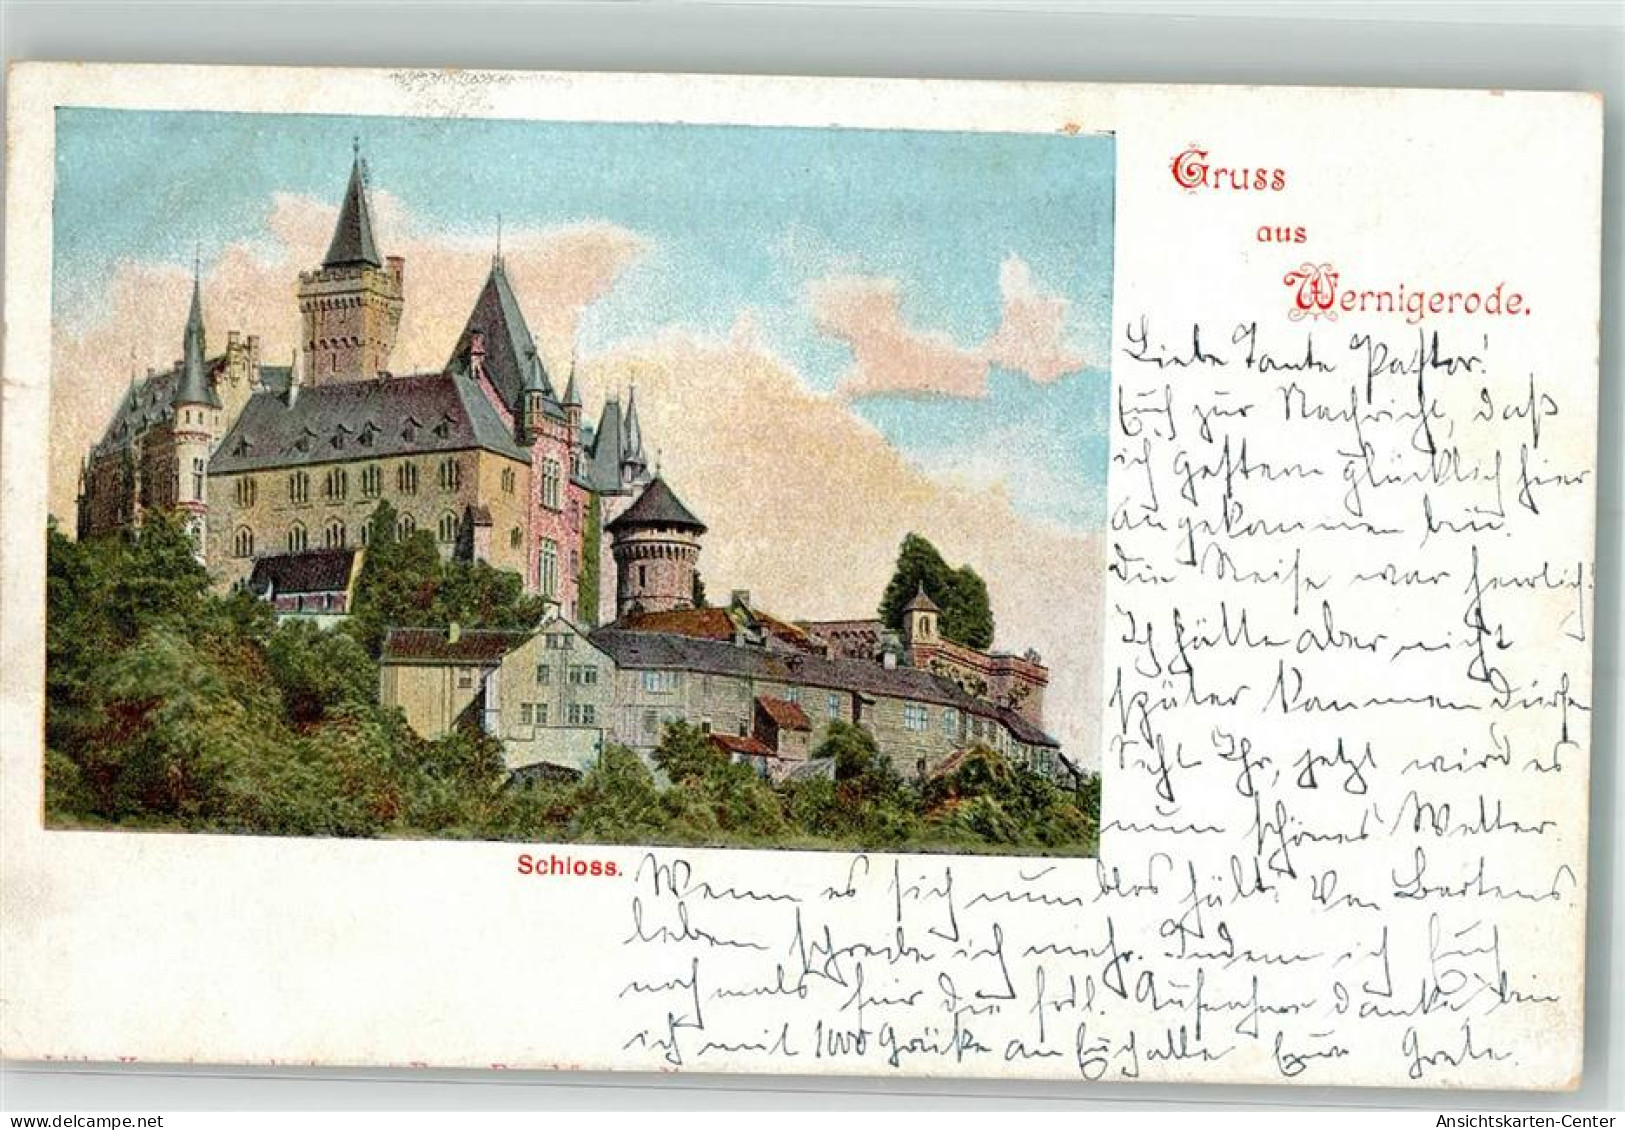 Gruss
aus
Wernigerode.
Liebe Tante Pastor!
Euch zur Nachricht, daß
ich gestern glücklich hier
angekommen bin.
Die Reise war herrlich!
Ich hätte aber nicht
später kommen dürfen
Seht Ihr, jetzt wird es
nun schönes Wetter.
Schloss.
Wenn es sich nun blos hält. Von Bartens
leben schreibe ich mehr. Indem ich Euch
nochmals für die frdl. Aufnahme danke bin
ich mit 1000 Grüße an Euch alle Eure Grete.
Ansichtskarten-Center